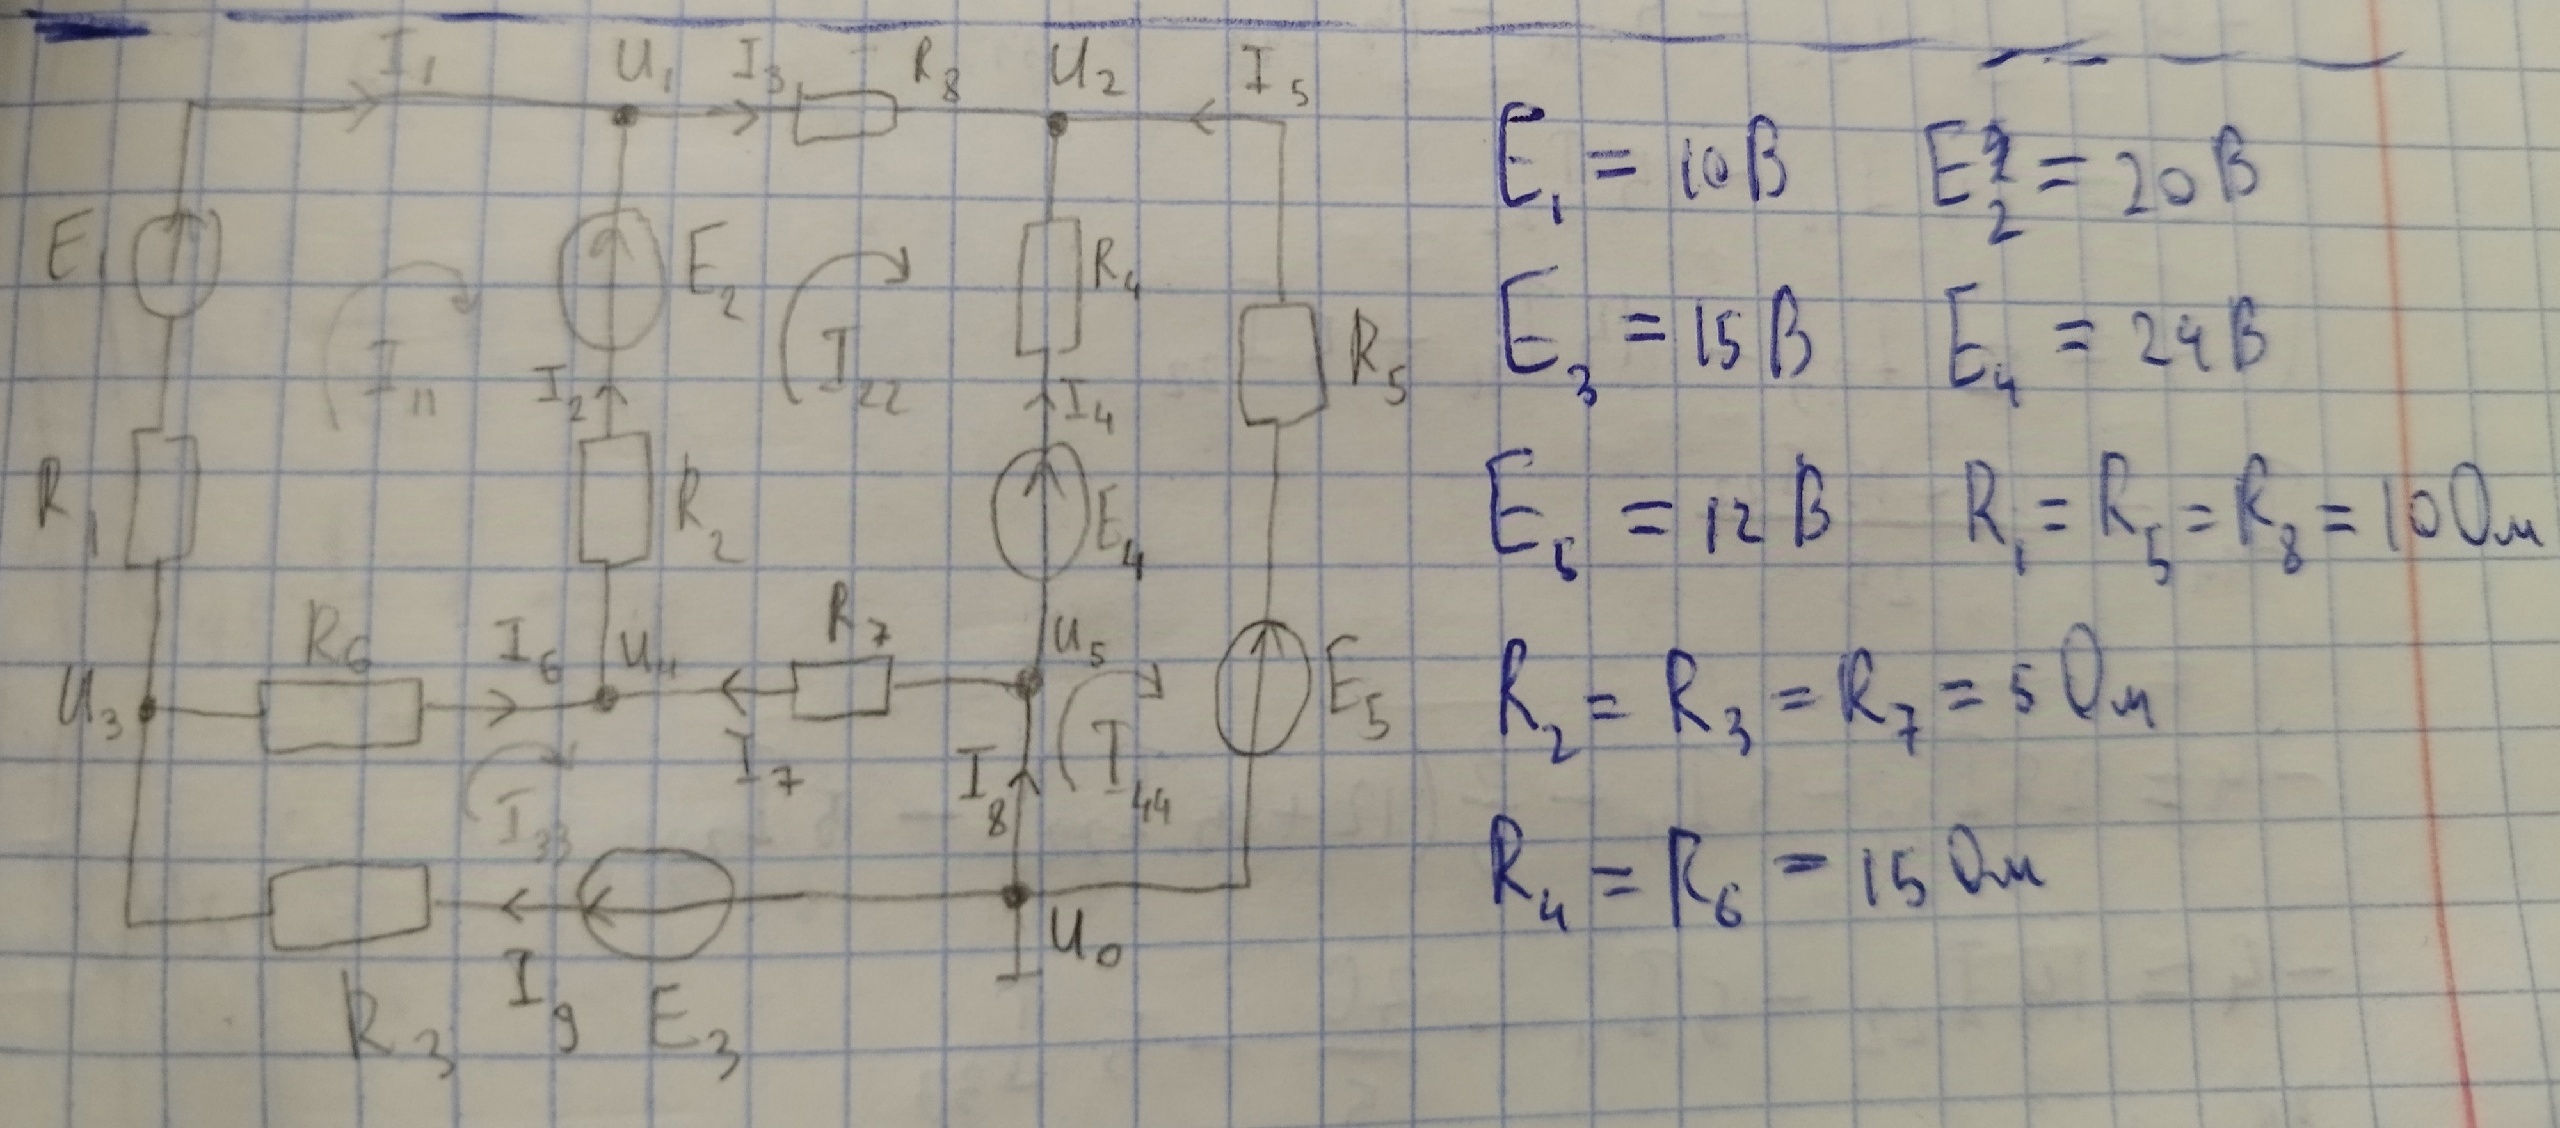 I₁ U₁ I₃ R₈ U₂ I₅
E₁ E₂ R₄
I₁₁ I₂ I₂₂ I₄ R₅
R₁ R₂ E₄
R₆ I₆ U₄ R₇ U₅
U₃ I₇ E₅
I₃₃ I₈ I₄₄
U₀
R₃ I₉ E₃
E₁ = 10 В E₂ = 20 В
E₃ = 15 В E₄ = 24 В
E₅ = 12 В R₁ = R₅ = R₈ = 10 Ом
R₂ = R₃ = R₇ = 5 Ом
R₄ = R₆ = 15 Ом